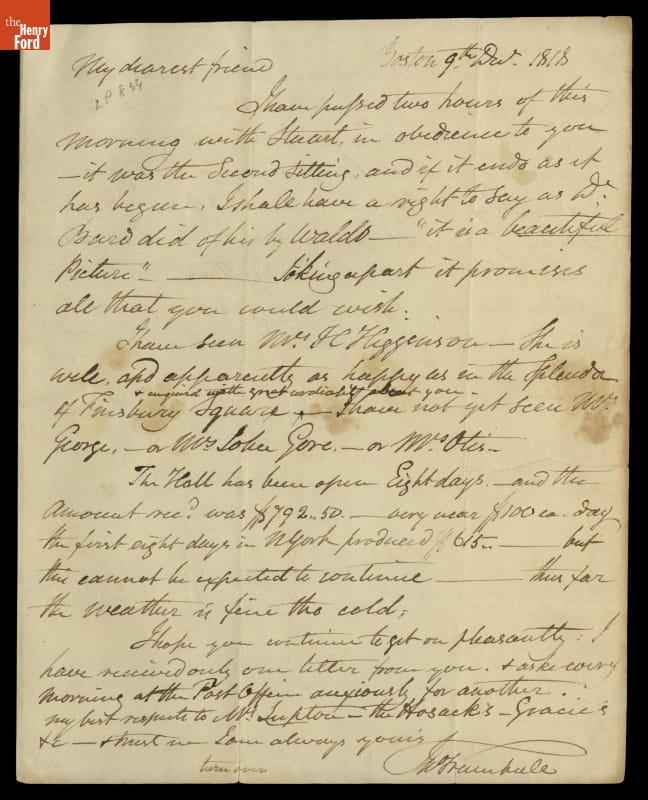 the
Henry
Ford
Boston 9th Decr. 1818
My dearest friend
I have passed two hours of this
morning with Stuart, in obedience to you
— it was the Second sitting, and if it ends as it
has begun, I shall have a right to say as Dr.
Bard did of his by Waldo — "it is a beautiful
Picture" — Joking apart it promises
all that you could wish.
I have seen Mrs H Higginson — She is
well, and apparently as happy as in the Splendor
& enquired with great cordiality about you —
of Finsbury Square — I have not yet seen Mrs.
George, — or Mrs Gore, — or Mrs Otis —
The Hall has been open Eight days. — and the
Amount recd. was $792..50. — very near $100 ea. day
the first eight days in NYork produced $615 — but
this cannot be expected to continue — thus far
the weather is fine tho cold;
I hope you continue to get on pleasantly: I
have received only one letter from you. & aske every
morning at the Post Office anxiously for another..
my best respects to Mrs Lupton — the Hosack's — Gracie's
&c — & trust me I am always yours
Jno Trumbull
turn over